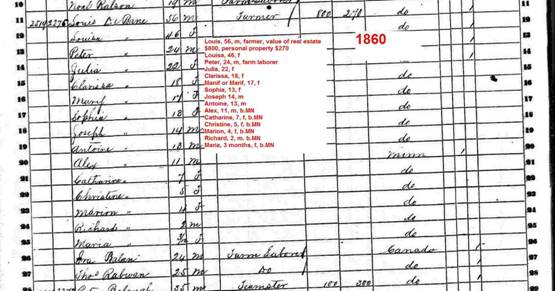 10 Noel Ralson 14 m
11 2519 2276 Louis De Bine 56 m Farmer 800 270 do 11
12 Louisa " 46 f do
13 Peter " 24 m
14 Julia " 22 f
15 Clarissa " 18 f do
16 Mary " 17 f do
17 Sophia " 13 f do
18 Joseph " 14 m do
19 Antoine " 13 m do
20 Alex " 11 m Minn
21 Catharine " 7 f do
22 Christine " 5 f do
23 Marion " 4 f do
24 Richard " 2 m do
25 Maria " f do
26 Balani 24 m Farm Labore Canada
27 Thos Rabwen 25 m Do do
28 35 m Teamster 100 300 do
1860
Louis, 56, m, farmer, value of real estate
$800, personal property $270
Louisa, 46, f
Peter, 24, m, farm laborer
Julia, 22, f
Clarissa, 18, f
Manif or Marif, 17, f
Sophia, 13, f
Joseph 14, m
Antoine, 13, m
Alex, 11, m, b.MN
Catharina, 7, f, b.MN
Christine, 5, f, b.MN
Marion, 4, f, b.MN
Richard, 2, m, b.MN
Marie, 3 months, f, b.MN